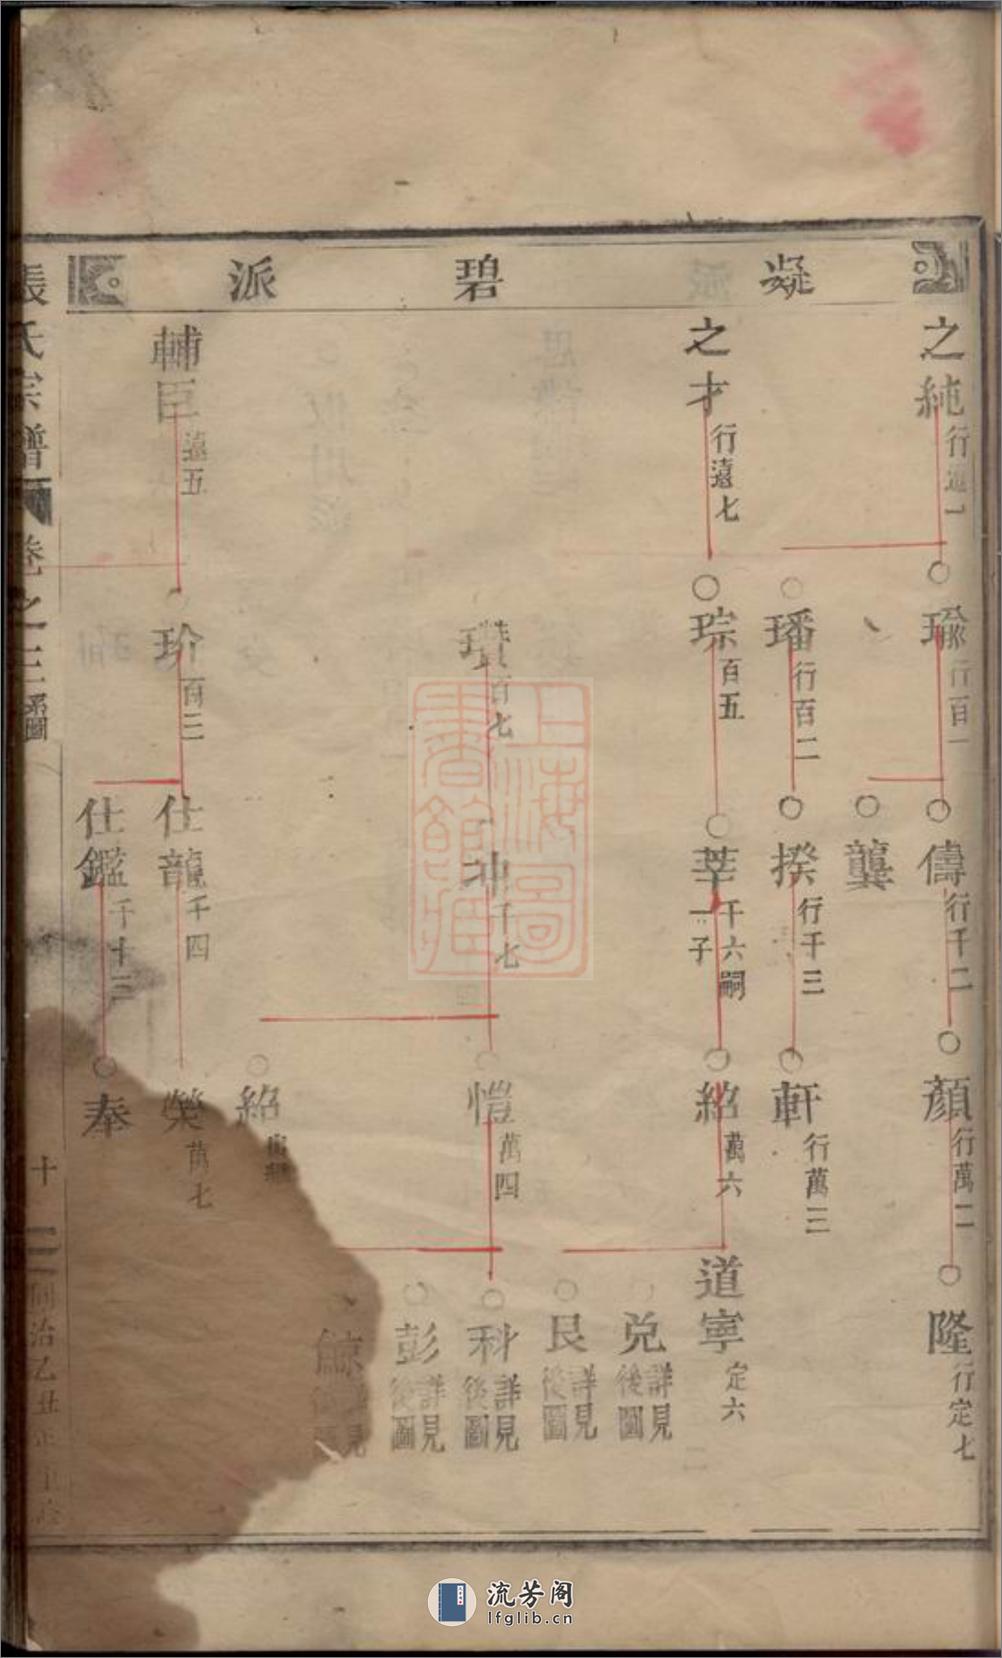 凝碧派
之純 行遠一
瑜 行百一
儔 行千二
顏 行萬二
隆 行定七
龔
璠 行百二
揆 行千三
軒 行萬三
之才 行遠七
琮 百五
莘 千六嗣一子
紹 萬六
道寧 定六
兌 詳見後圖
艮 詳見後圖
瓚 百七
冲 千七
愷 萬四
科 詳見後圖
彭 詳見後圖
紹
輔臣 遠五
玠 百三
仕龍 千四
榮 萬七
仕鑑 千十三
奉
張氏宗譜 卷之三 系圖
同治乙丑
上海圖書館藏
流芳阁
lfglib.cn